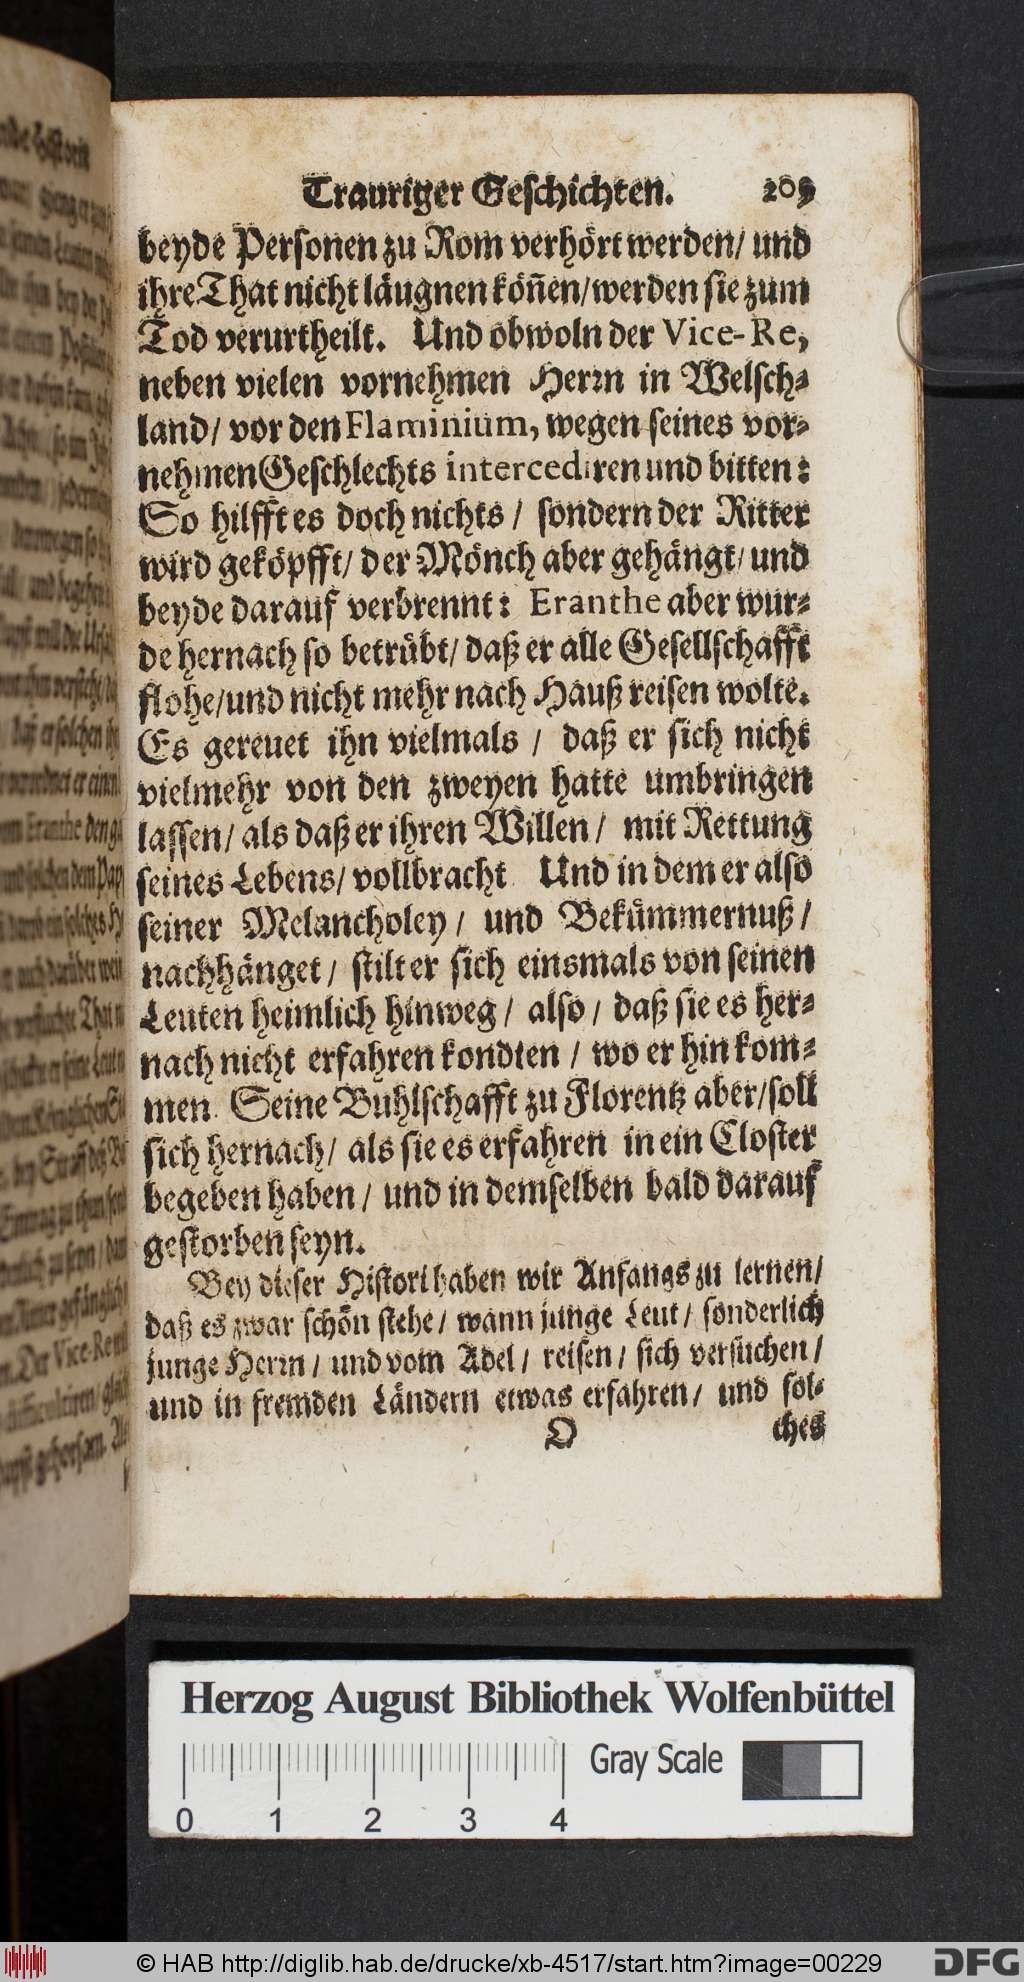 Trauriger Geschichten. 209
beyde Personen zu Rom verhört werden/ und
ihre That nicht läugnen köñen/werden sie zum
Tod verurtheilt. Und obwoln der Vice-Re,
neben vielen vornehmen Herrn in Welsch-
land/ vor den Flaminium, wegen seines vor-
nehmen Geschlechts intercediren und bitten:
So hilfft es doch nichts / sondern der Ritter
wird geköpfft/ der Mönch aber gehängt/ und
beyde darauf verbrennt: Eranthe aber wur-
de hernach so betrübt/ daß er alle Gesellschafft
flohe/und nicht mehr nach Hauß reisen wolte.
Es gereuet ihn vielmals / daß er sich nicht
vielmehr von den zweyen hatte umbringen
lassen/ als daß er ihren Willen / mit Rettung
seines Lebens/ vollbracht Und in dem er also
seiner Melancholey / und Bekümmernuß /
nachhänget / stilt er sich einsmals von seinen
Leuten heimlich hinweg / also / daß sie es her-
nach nicht erfahren kondten / wo er hin kom-
men. Seine Buhlschafft zu Florentz aber/soll
sich hernach/ als sie es erfahren in ein Closter
begeben haben / und in demselben bald darauf
gestorben seyn.
Bey dieser Histori haben wir Anfangs zu lernen/
daß es zwar schön stehe / wann junge Leut / sonderlich
junge Herrn / und vom Adel / reisen / sich versuchen /
und in fremden Ländern etwas erfahren / und sol-
O ches
Herzog August Bibliothek Wolfenbüttel
Gray Scale
0 1 2 3 4
© HAB http://diglib.hab.de/drucke/xb-4517/start.htm?image=00229
DFG